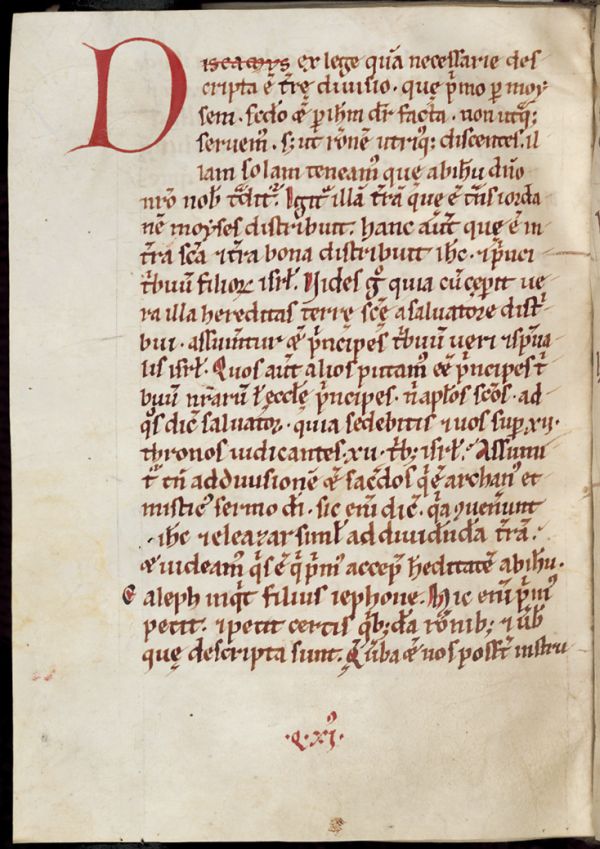 Discamus ex lege quā necessarie des
cripta ē t̄rę divisio· quę p̄mo p̄ moy
sem· scdo & p̄ ihm̄ dr̄ facta· non utq;
servem̄· s; ut rōnē utriq; discentes· il
lam solam teneam̄ quę abihu dño
nr̄o nob̄ tdit̄· Igit̄ illā t̄rā quę ē t̄ns iorda
nē moyses distribuit· hanc aūt quę ē in
t̄rā sc̄a & t̄ra bona distribuit ihc· & p̄nci
tbuū filioꝝ isrl̄· Vides g̊ quia cū cęperit ve
ra illa hereditas terrę scę a salvatore dist
bui· assumuntur & p̄ncipes tbuū veri & sp̄ua
lis isrl̄· Quos aūt alios putam̄ eē p̄ncipes t
buū nrarū l eccłę p̄ncipes· n̄ aplos sc̄os· ad
q̊s dic̄ salvator· quia sedebitis & vos sup̄ xii·
thronos iudicantes· xii· tb; isrl̄· Assumi
t̄ tn̄ ad divisionē & sacdos q̄ ē archan̄ et
mistic̄ sermo di· sic enī dic̄· q̄a ɋuenīunt
· ihc & eleazar simul ad dividūda t̄rā·
& videam̄ q̄s ē q̄ p̄m̄ accep̄ hęditatē abihu·
Caleph inqt filius iephone· Hic enī p̄m̄
petit· & petit certis q̄b;dā rōnib; & ūb
quę descripta sunt· Q̄ ūba & nos poss̄t instru
·Q· xi·